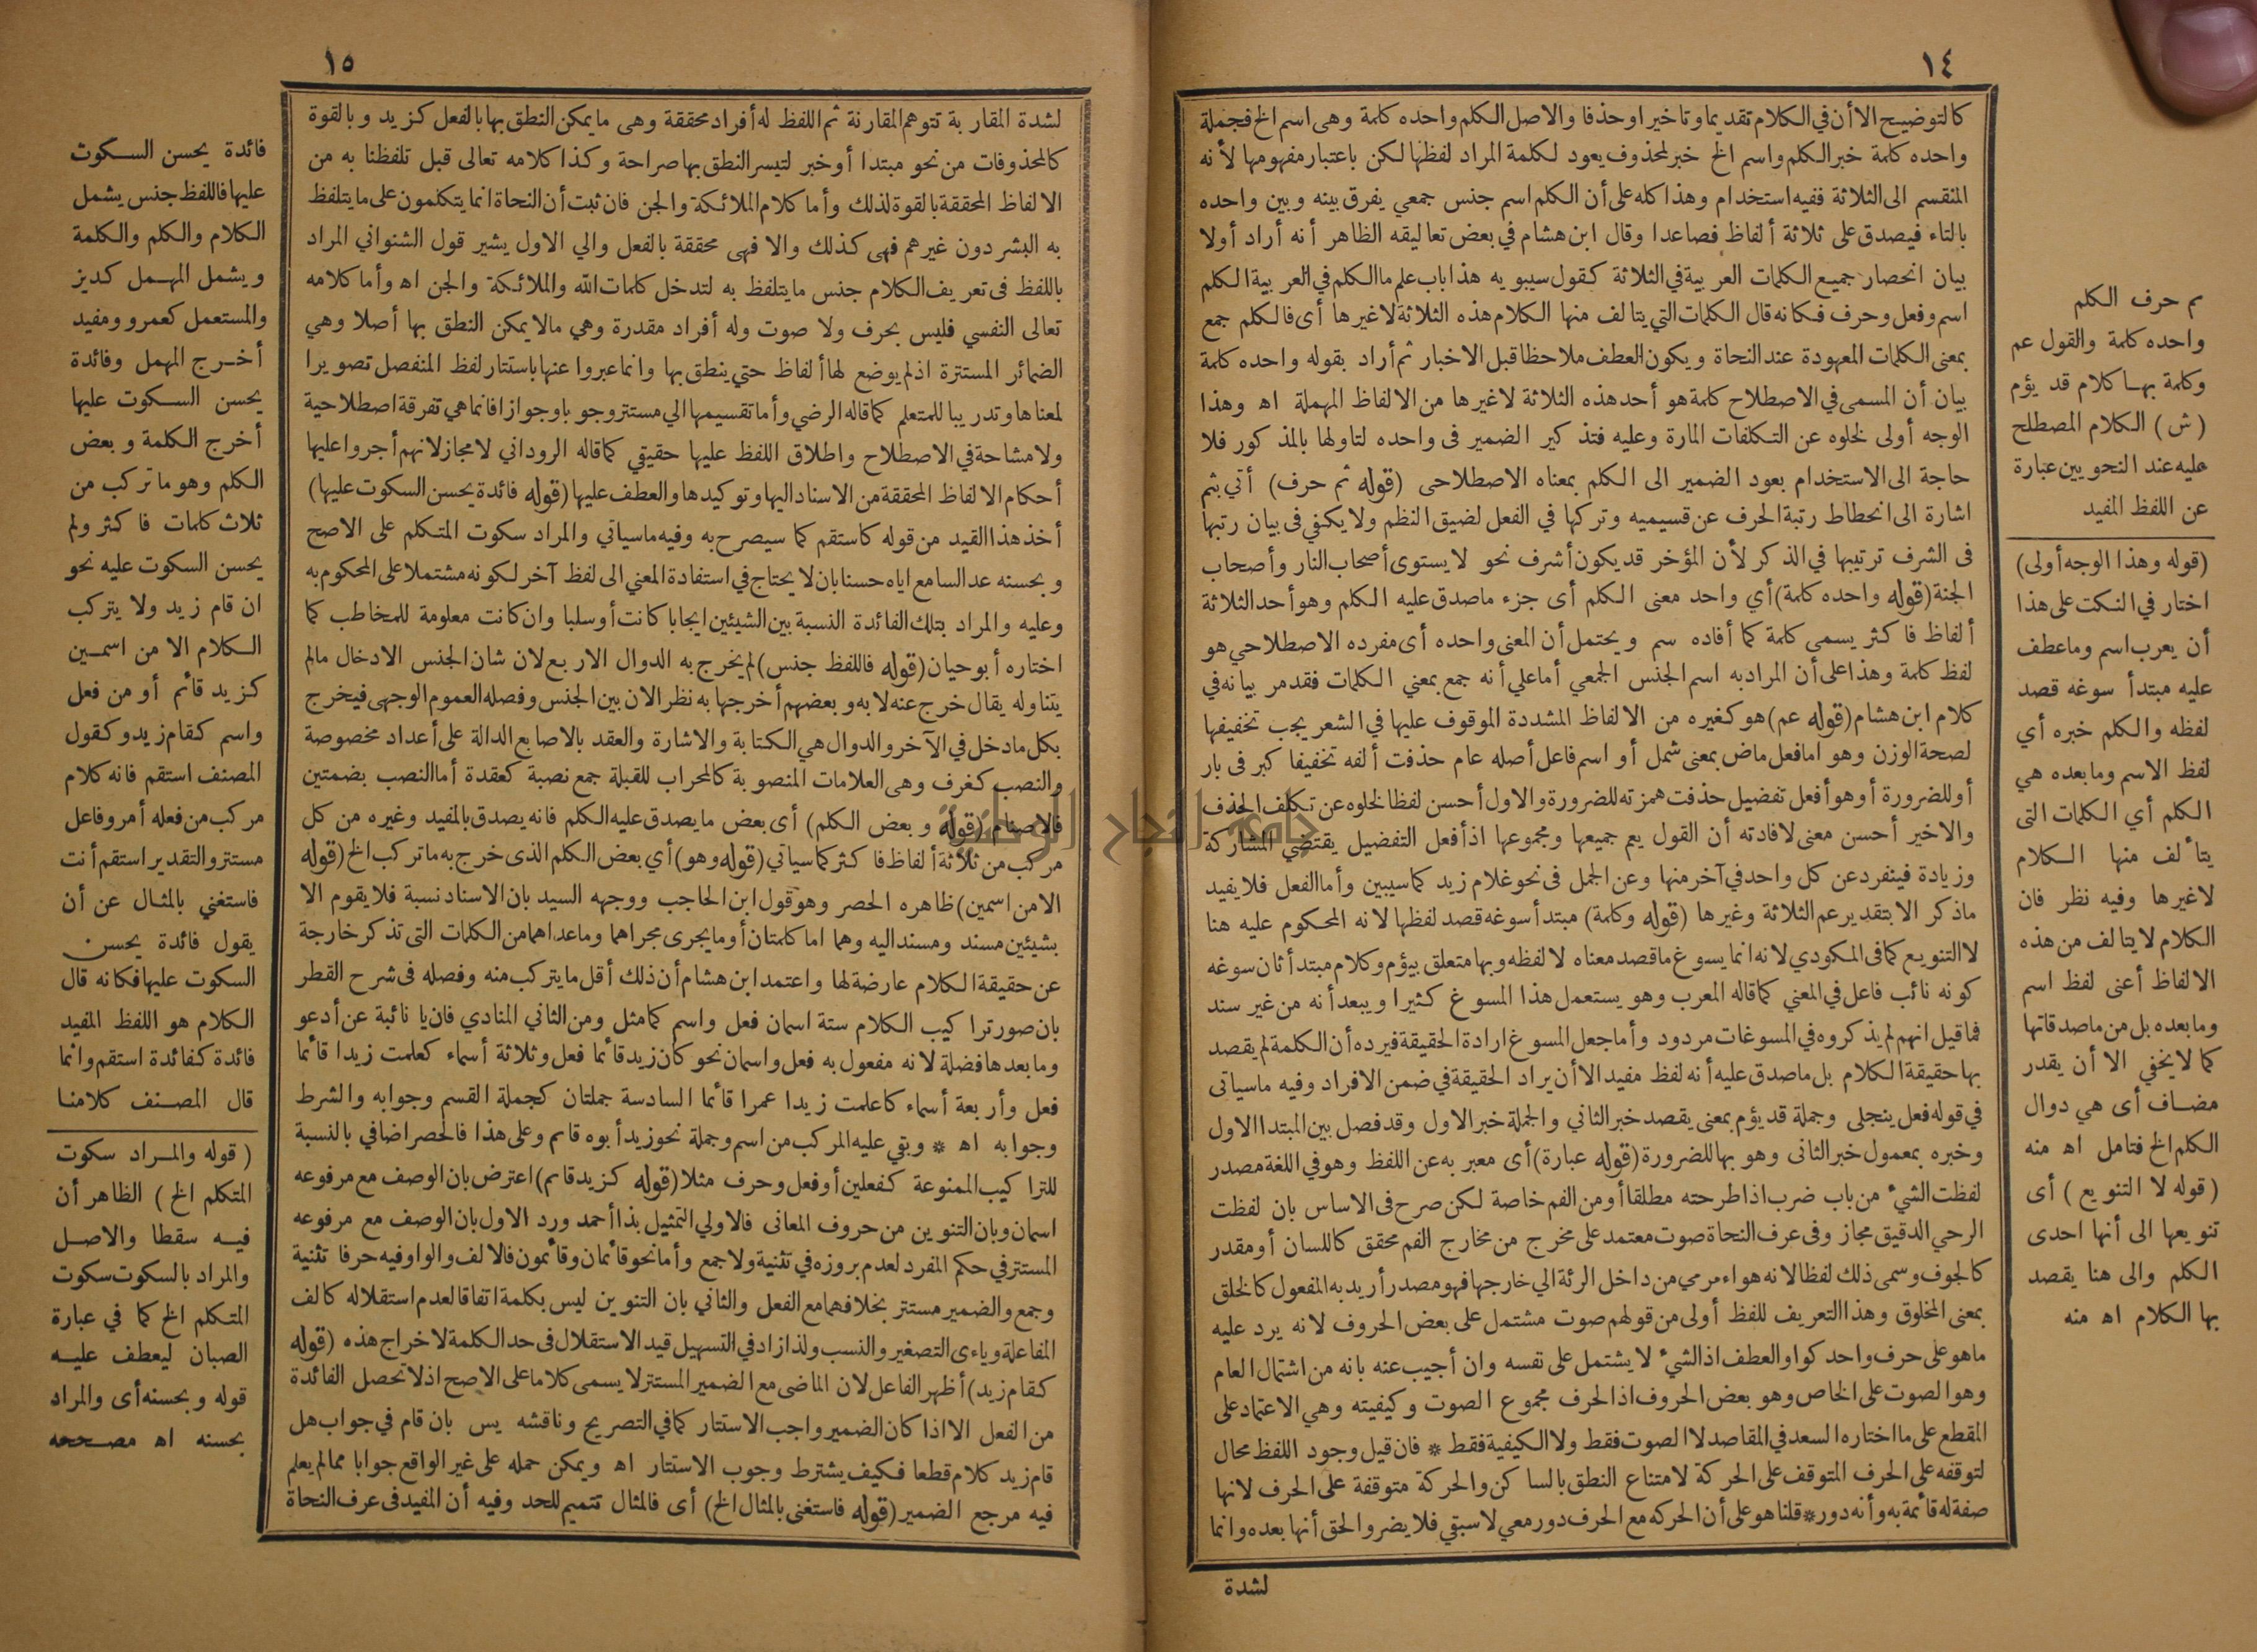 ١٤
كالتوضيح الا أن في الكلام تقديما وتاخيرا وحذفا والاصل الكلم واحده كلمة وهى اسم الخ فجملة
واحده كلمة خبر الكلم واسم الخ خبر لمحذوف يعود لكلمة المراد لفظها لكن باعتبار مفهومها لأنه
المنقسم الى الثلاثة ففيه استخدام وهذا كله على أن الكلم اسم جنس جمعي يفرق بينه وبين واحده
بالتاء فيصدق على ثلاثة ألفاظ فصاعدا وقال ابن هشام في بعض تعاليقه الظاهر أنه أراد أولا
بيان انحصار جميع الكلمات العربية في الثلاثة كقول سيبويه هذا باب علم ما الكلم في العربية الكلم
اسم وفعل وحرف فكانه قال الكلمات التي يتالف منها الكلام هذه الثلاثة لاغيرها أى فالكلم جمع
بمعنى الكلمات المعهودة عند النحاة ويكون العطف ملاحظا قبل الاخبار ثم أراد بقوله واحده كلمة
بيان أن المسمى في الاصطلاح كلمة هو أحد هذه الثلاثة لاغيرها من الالفاظ المهملة اه وهذا
الوجه أولى لخلوه عن التكلفات المارة وعليه فتذكير الضمير فى واحده لتاولها بالمذكور فلا
حاجة الى الاستخدام بعود الضمير الى الكلم بمعناه الاصطلاحى (قوله ثم حرف) أتي بثم
اشارة الى انحطاط رتبة الحرف عن قسيميه وتركها في الفعل لضيق النظم ولا يكفي فى بيان رتبها
فى الشرف ترتيبها في الذكر لأن المؤخر قد يكون أشرف نحو لا يستوى أصحاب النار وأصحاب
الجنة (قوله واحده كلمة) أي واحد معنى الكلم أى جزء ماصدق عليه الكلم وهو أحد الثلاثة
ألفاظ فاكثر يسمى كلمة كما أفاده سم ويحتمل أن المعنى واحده أى مفرده الاصطلاحي هو
لفظ كلمة وهذا على أن المراد به اسم الجنس الجمعي أما على أنه جمع بمعني الكلمات فقد مر بيانه في
كلام ابن هشام (قوله عم) هو كغيره من الالفاظ المشددة الموقوف عليها في الشعر يجب تخفيفها
لصحة الوزن وهو اما فعل ماض بمعنى شمل أو اسم فاعل أصله عام حذفت ألفه تخفيفا كبر فى بار
أو للضرورة أو هو أفعل تفضيل حذفت همزته للضرورة والاول أحسن لفظا لخلوه عن تكلف الحذف
والاخير أحسن معنى لافادته أن القول يعم جميعها ومجموعها اذ أفعل التفضيل يقتضي المشاركة
وزيادة فينفرد عن كل واحد في آخر منها وعن الجمل فى نحو غلام زيد كما سيبين وأما الفعل فلا يفيد
ماذكر الا بتقدير عم الثلاثة وغيرها (قوله وكلمة) مبتدأ سوغه قصد لفظها لانه المحكوم عليه هنا
لا التنويع كما فى المكودي لانه انما يسوغ ما قصد معناه لا لفظه وبها متعلق بيؤم وكلام مبتدأ ثان سوغه
كونه نائب فاعل في المعني كما قاله المعرب وهو يستعمل هذا المسوغ كثيرا ويبعد أنه من غير سند
فما قيل انهم لم يذكروه في المسوغات مردود وأما جعل المسوغ ارادة الحقيقة فيرده أن الكلمة لم يقصد
بها حقيقة الكلام بل ما صدق عليه أنه لفظ مفيد الا أن يراد الحقيقة في ضمن الافراد وفيه ماسياتى
في قوله فعل ينجلى وجملة قد يؤم بمعنى يقصد خبر الثاني والجملة خبر الاول وقد فصل بين المبتدا الاول
وخبره بمعمول خبر الثانى وهو بها للضرورة (قوله عبارة) أى معبر به عن اللفظ وهو في اللغة مصدر
لفظت الشيء من باب ضرب اذا طرحته مطلقا أو من الفم خاصة لكن صرح فى الاساس بان لفظت
الرحي الدقيق مجاز وفى عرف النحاة صوت معتمد على مخرج من مخارج الفم محقق كاللسان أو مقدر
كالجوف وسمى ذلك لفظا لانه هواء مرمي من داخل الرئة الي خارجها فهو مصدر أريد به المفعول كالخلق
بمعنى المخلوق وهذا التعريف للفظ أولى من قولهم صوت مشتمل على بعض الحروف لانه يرد عليه
ماهو على حرف واحد كواو العطف اذ الشيء لا يشتمل على نفسه وان أجيب عنه بانه من اشتمال العام
وهو الصوت على الخاص وهو بعض الحروف اذ الحرف مجموع الصوت وكيفيته وهي الاعتماد على
المقطع على ما اختاره السعد في المقاصد لا الصوت فقط ولا الكيفية فقط * فان قيل وجود اللفظ محال
لتوقفه على الحرف المتوقف على الحركة لامتناع النطق بالساكن والحركة متوقفة على الحرف لانها
صفة له قائمة به وأنه دور * قلنا هو على أن الحركه مع الحرف دور معي لا سبقي فلا يضر والحق أنها بعده وانما
لشدة
ثم حرف الكلم
واحده كلمة والقول عم
وكلمة بها كلام قد يؤم
(ش) الكلام المصطلح
عليه عند النحويين عبارة
عن اللفظ المفيد
(قوله وهذا الوجه أولى)
اختار في النكت على هذا
أن يعرب اسم وما عطف
عليه مبتدأ سوغه قصد
لفظه والكلم خبره أي
لفظ الاسم وما بعده هي
الكلم أي الكلمات التى
يتألف منها الكلام
لاغيرها وفيه نظر فان
الكلام لا يتالف من هذه
الالفاظ أعنى لفظ اسم
وما بعده بل من ماصدقاتها
كما لا يخفي الا أن يقدر
مضاف أى هي دوال
الكلم الخ فتامل اه منه
(قوله لا التنويع) أى
تنويعها الى أنها احدى
الكلم والى هنا يقصد
بها الكلام اه منه
١٥
لشدة المقاربة تتوهم المقارنة ثم اللفظ له أفراد محققة وهى ما يمكن النطق بها بالفعل كزيد وبالقوة
كالمحذوفات من نحو مبتدا أو خبر لتيسر النطق بها صراحة وكذا كلامه تعالى قبل تلفظنا به من
الالفاظ المحققة بالقوة لذلك وأما كلام الملائكة والجن فان ثبت أن النحاة انما يتكلمون على ما يتلفظ
به البشر دون غيرهم فهى كذلك والا فهى محققة بالفعل والي الاول يشير قول الشنواني المراد
باللفظ فى تعريف الكلام جنس ما يتلفظ به لتدخل كلمات الله والملائكة والجن اه وأما كلامه
تعالى النفسي فليس بحرف ولا صوت وله أفراد مقدرة وهي مالا يمكن النطق بها أصلا وهي
الضمائر المستترة اذ لم يوضع لها ألفاظ حتي ينطق بها وانما عبروا عنها باستتار لفظ المنفصل تصويرا
لمعناها وتدريبا للمتعلم كما قاله الرضي وأما تقسيمها الي مستتر وجوبا وجوازا فانما هي تفرقة اصطلاحية
ولا مشاحة في الاصطلاح واطلاق اللفظ عليها حقيقي كما قاله الروداني لا مجاز لانهم أجروا عليها
أحكام الالفاظ المحققة من الاسناد اليها وتوكيدها والعطف عليها (قوله فائدة يحسن السكوت عليها)
أخذ هذا القيد من قوله كاستقم كما سيصرح به وفيه ماسياتي والمراد سكوت المتكلم على الاصح
وبحسنه عد السامع اياه حسنا بان لا يحتاج في استفادة المعني الى لفظ آخر لكونه مشتملا على المحكوم به
وعليه والمراد بتلك الفائدة النسبة بين الشيئين ايجابا كانت أو سلبا وان كانت معلومة للمخاطب كما
اختاره أبو حيان (قوله فاللفظ جنس) لم يخرج به الدوال الاربع لان شان الجنس الادخال مالم
يتناوله يقال خرج عنه لا به وبعضهم أخرجها به نظر الان بين الجنس وفصله العموم الوجهى فيخرج
بكل مادخل في الآخر والدوال هي الكتابة والاشارة والعقد بالاصابع الدالة على أعداد مخصوصة
والنصب كغرف وهى العلامات المنصوبة كالمحراب للقبلة جمع نصبة كعقدة أما النصب بضمتين
فالاصنام (قوله وبعض الكلم) أى بعض ما يصدق عليه الكلم فانه يصدق بالمفيد وغيره من كل
مركب من ثلاثة ألفاظ فاكثر كما سياتي (قوله وهو) أي بعض الكلم الذى خرج به ما تركب الخ (قوله
الا من اسمين) ظاهره الحصر وهو قول ابن الحاجب ووجهه السيد بان الاسناد نسبة فلا يقوم الا
بشيئين مسند ومسند اليه وهما اما كلمتان أو ما يجرى مجراهما وماعداهما من الكلمات التى تذكر خارجة
عن حقيقة الكلام عارضة لها واعتمد ابن هشام أن ذلك أقل ما يتركب منه وفصله فى شرح القطر
بان صور تراكيب الكلام ستة اسمان فعل واسم كما مثل ومن الثاني المنادي فان يا نائبة عن أدعو
وما بعدها فضلة لانه مفعول به فعل واسمان نحو كان زيد قائما فعل وثلاثة أسماء كعلمت زيدا قائما
فعل وأربعة أسماء كاعلمت زيدا عمرا قائما السادسة جملتان كجملة القسم وجوابه والشرط
وجوابه اه * وبقي عليه المركب من اسم وجملة نحو زيد أبوه قاىم وعلى هذا فالحصر اضافي بالنسبة
للتراكيب الممنوعة كفعلين أو فعل وحرف مثلا (قوله كزيد قاىم) اعترض بان الوصف مع مرفوعه
اسمان وبان التنوين من حروف المعانى فالاولي التمثيل بذا أحمد ورد الاول بان الوصف مع مرفوعه
المستتر في حكم المفرد لعدم بروزه في تثنية ولا جمع وأما نحو قائمان وقائمون فالالف والواو فيه حرفا تثنية
وجمع والضمير مستتر بخلافهما مع الفعل والثاني بان التنوين ليس بكلمة اتفاقا لعدم استقلاله كالف
المفاعلة وياءى التصغير والنسب ولذا زاد في التسهيل قيد الاستقلال فى حد الكلمة لاخراج هذه (قوله
كقام زيد) أظهر الفاعل لان الماضى مع الضمير المستتر لا يسمى كلاما على الاصح اذ لا تحصل الفائدة
من الفعل الا اذا كان الضمير واجب الاستتار كما في التصريح وناقشه يس بان قام في جواب هل
قام زيد كلام قطعا فكيف يشترط وجوب الاستتار اه ويمكن حمله على غير الواقع جوابا مما لم يعلم
فيه مرجع الضمير (قوله فاستغنى بالمثال الخ) أى فالمثال تتميم للحد وفيه أن المفيد فى عرف النحاة
فائدة يحسن السكوت
عليها فاللفظ جنس يشمل
الكلام والكلم والكلمة
ويشمل المهمل كديز
والمستعمل كعمرو ومفيد
أخرج المهمل وفائدة
يحسن السكوت عليها
أخرج الكلمة وبعض
الكلم وهو ما تركب من
ثلاث كلمات فاكثر ولم
يحسن السكوت عليه نحو
ان قام زيد ولا يتركب
الكلام الا من اسمين
كزيد قائم أو من فعل
واسم كقام زيد وكقول
المصنف استقم فانه كلام
مركب من فعله أمر وفاعل
مستتر والتقدير استقم أنت
فاستغني بالمثال عن أن
يقول فائدة يحسن
السكوت عليها فكانه قال
الكلام هو اللفظ المفيد
فائدة كفائدة استقم وانما
قال المصنف كلامنا
(قوله والمراد سكوت
المتكلم الخ) الظاهر أن
فيه سقطا والاصل
والمراد بالسكوت سكوت
المتكلم الخ كما في عبارة
الصبان ليعطف عليه
قوله وبحسنه أى والمراد
بحسنه اه مصححه
جامعة النجاح الوطنية